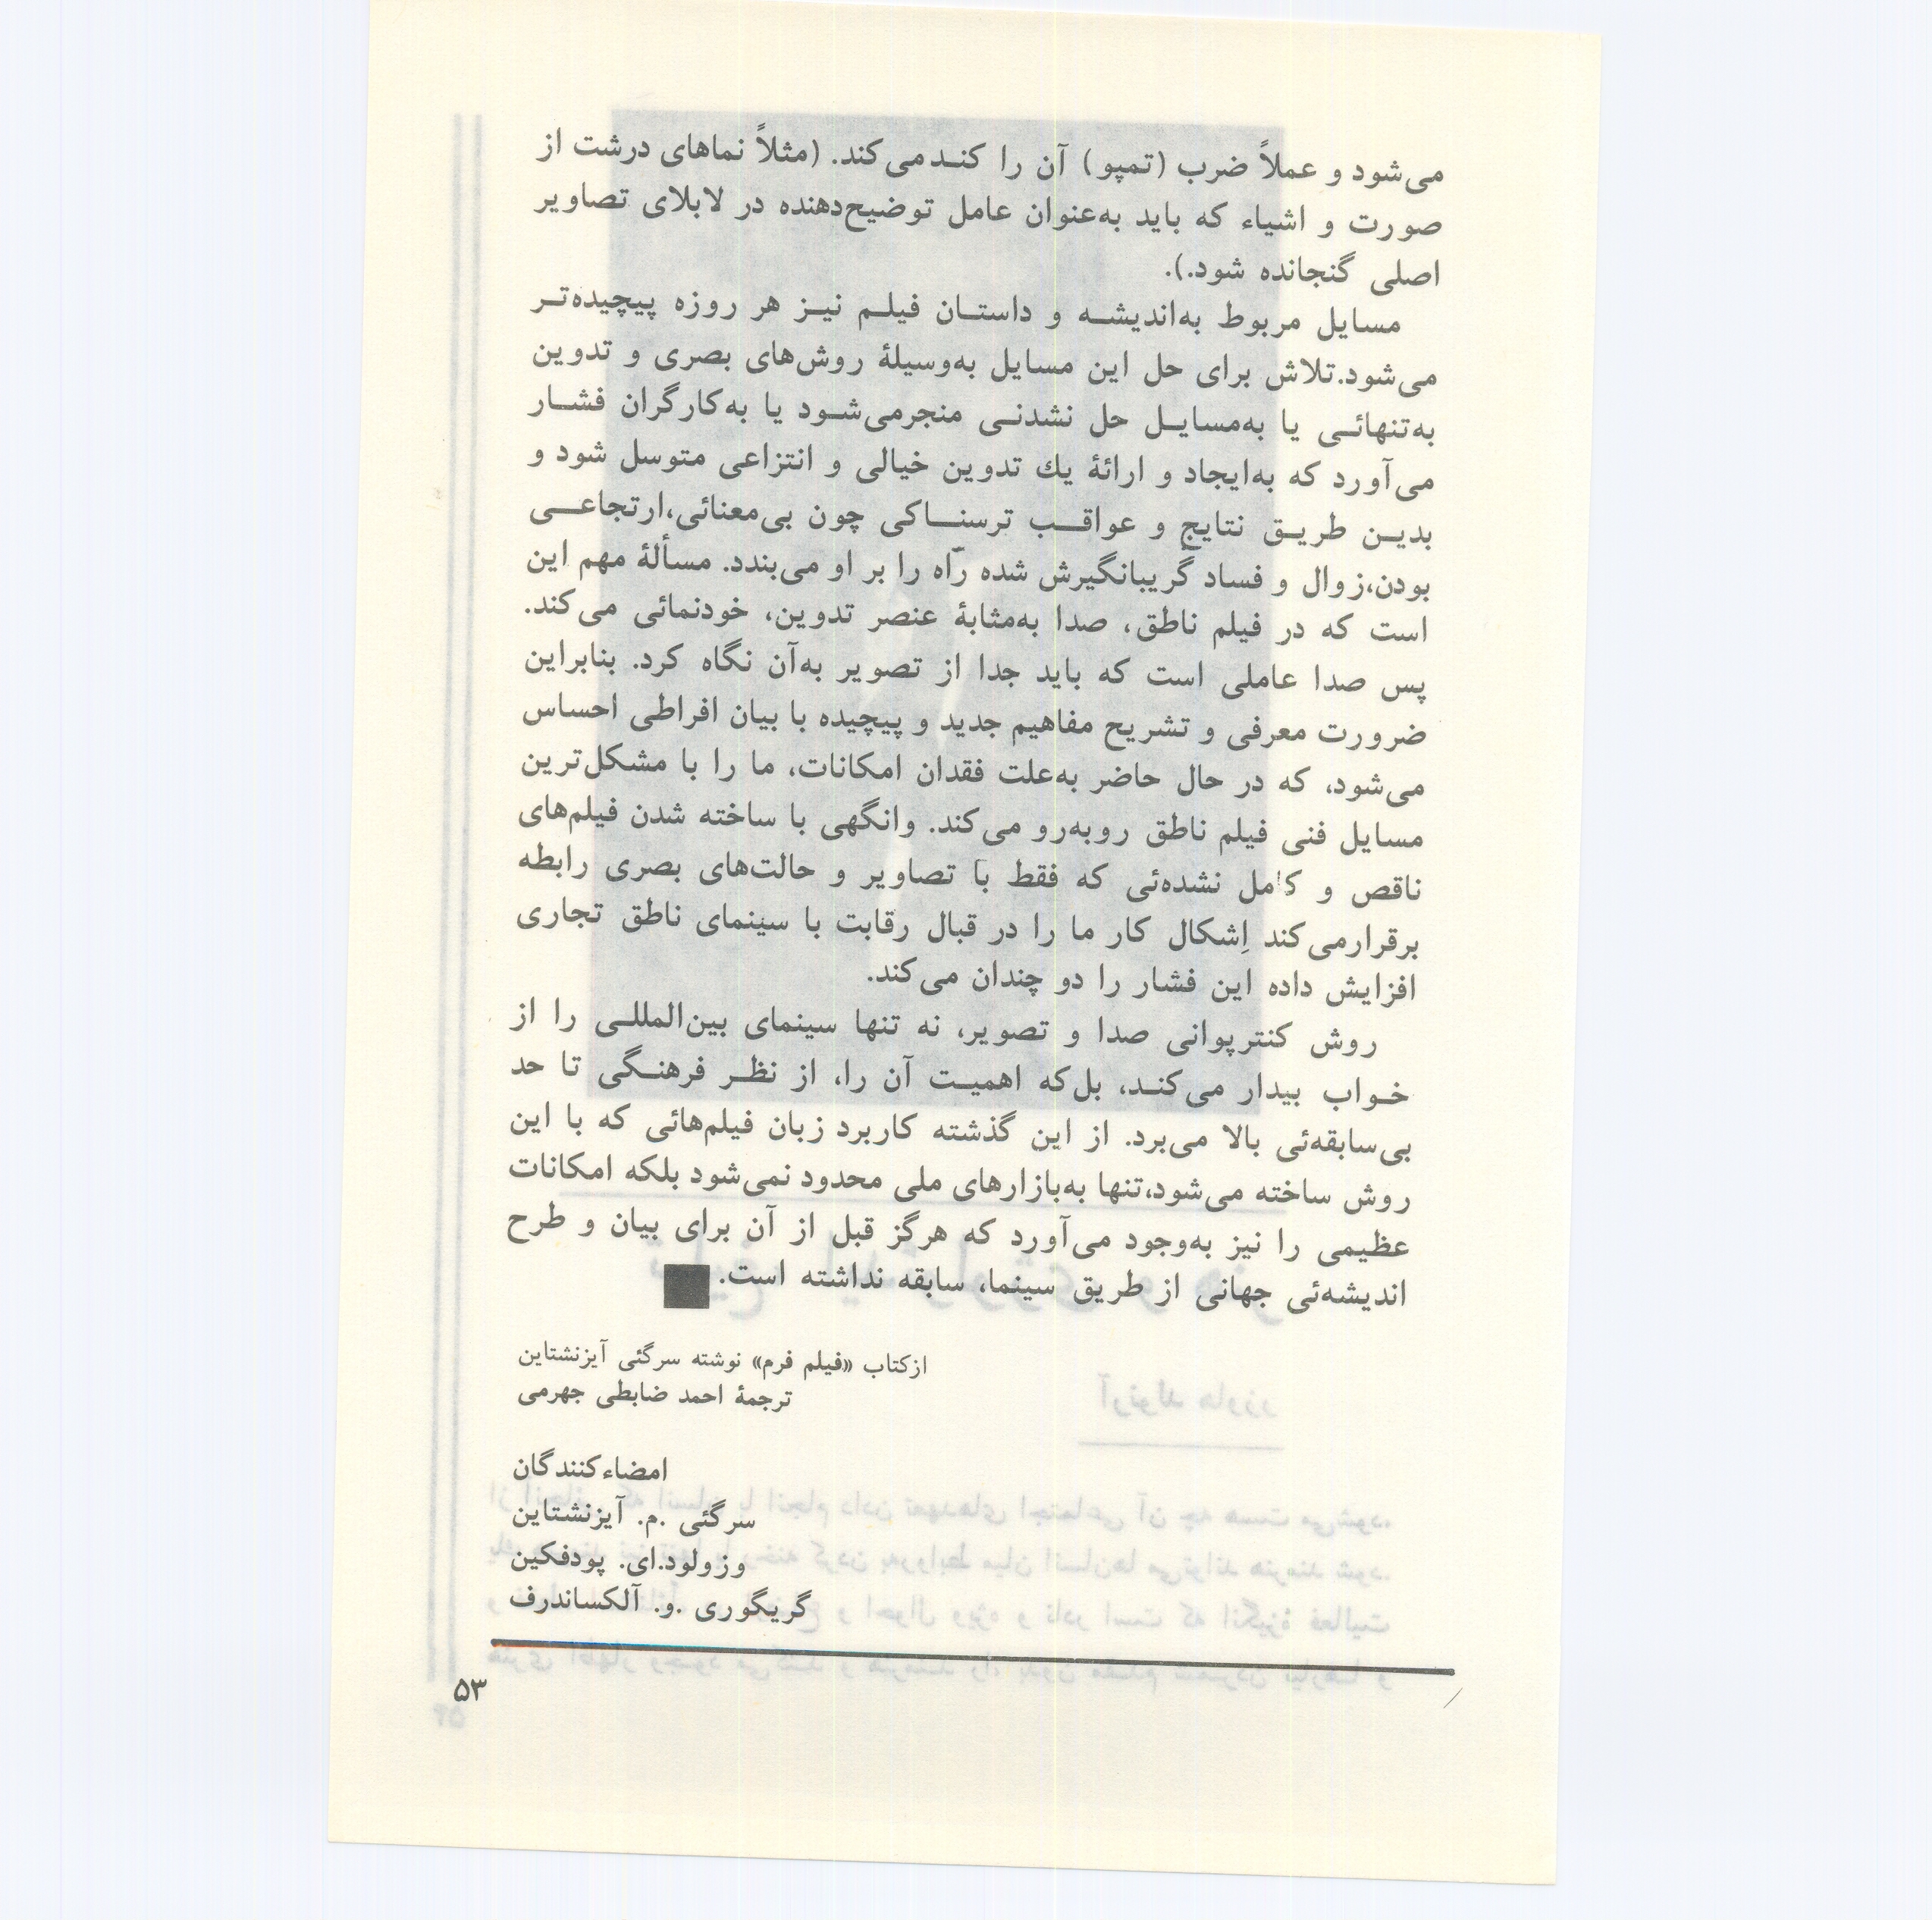 می‌شود و عملاً ضرب (تمپو) آن را کند می‌کند. (مثلاً نماهای درشت از
صورت و اشیاء که باید به‌عنوان عامل توضیح‌دهنده در لابلای تصاویر
اصلی گنجانده شود.).
مسایل مربوط به‌اندیشه و داستان فیلم نیز هر روزه پیچیده‌تر
می‌شود.تلاش برای حل این مسایل به‌وسیلهٔ روش‌های بصری و تدوین
به‌تنهائی یا به‌مسایل حل نشدنی منجرمی‌شود یا به‌کارگران فشار
می‌آورد که به‌ایجاد و ارائهٔ یك تدوین خیالی و انتزاعی متوسل شود و
بدین طریق نتایج و عواقب ترسناکی چون بی‌معنائی،ارتجاعی
بودن،زوال و فساد گریبانگیرش شده راه را بر او می‌بندد. مسألهٔ مهم این
است که در فیلم ناطق، صدا به‌مثابهٔ عنصر تدوین، خودنمائی می‌کند.
پس صدا عاملی است که باید جدا از تصویر به‌آن نگاه کرد. بنابراین
ضرورت معرفی و تشریح مفاهیم جدید و پیچیده با بیان افراطی احساس
می‌شود، که در حال حاضر به‌علت فقدان امکانات، ما را با مشکل‌ترین
مسایل فنی فیلم ناطق روبه‌رو می‌کند. وانگهی با ساخته شدن فیلم‌های
ناقص و کامل نشده‌ئی که فقط با تصاویر و حالت‌های بصری رابطه
برقرارمی‌کند اِشکال کار ما را در قبال رقابت با سینمای ناطق تجاری
افزایش داده این فشار را دو چندان می‌کند.
روش کنترپوانی صدا و تصویر، نه تنها سینمای بین‌المللی را از
خواب بیدار می‌کند، بل‌که اهمیت آن را، از نظر فرهنگی تا حد
بی‌سابقه‌ئی بالا می‌برد. از این گذشته کاربرد زبان فیلم‌هائی که با این
روش ساخته می‌شود،تنها به‌بازارهای ملی محدود نمی‌شود بلکه امکانات
عظیمی را نیز به‌وجود می‌آورد که هرگز قبل از آن برای بیان و طرح
اندیشه‌ئی جهانی از طریق سینما، سابقه نداشته است.
ازکتاب «فیلم فرم» نوشته سرگئی آیزنشتاین
ترجمهٔ احمد ضابطی جهرمی
امضاءکنندگان
سرگئی .م. آیزنشتاین
وزولود.ای. پودفکین
گریگوری .و. آلکساندرف
۵۳